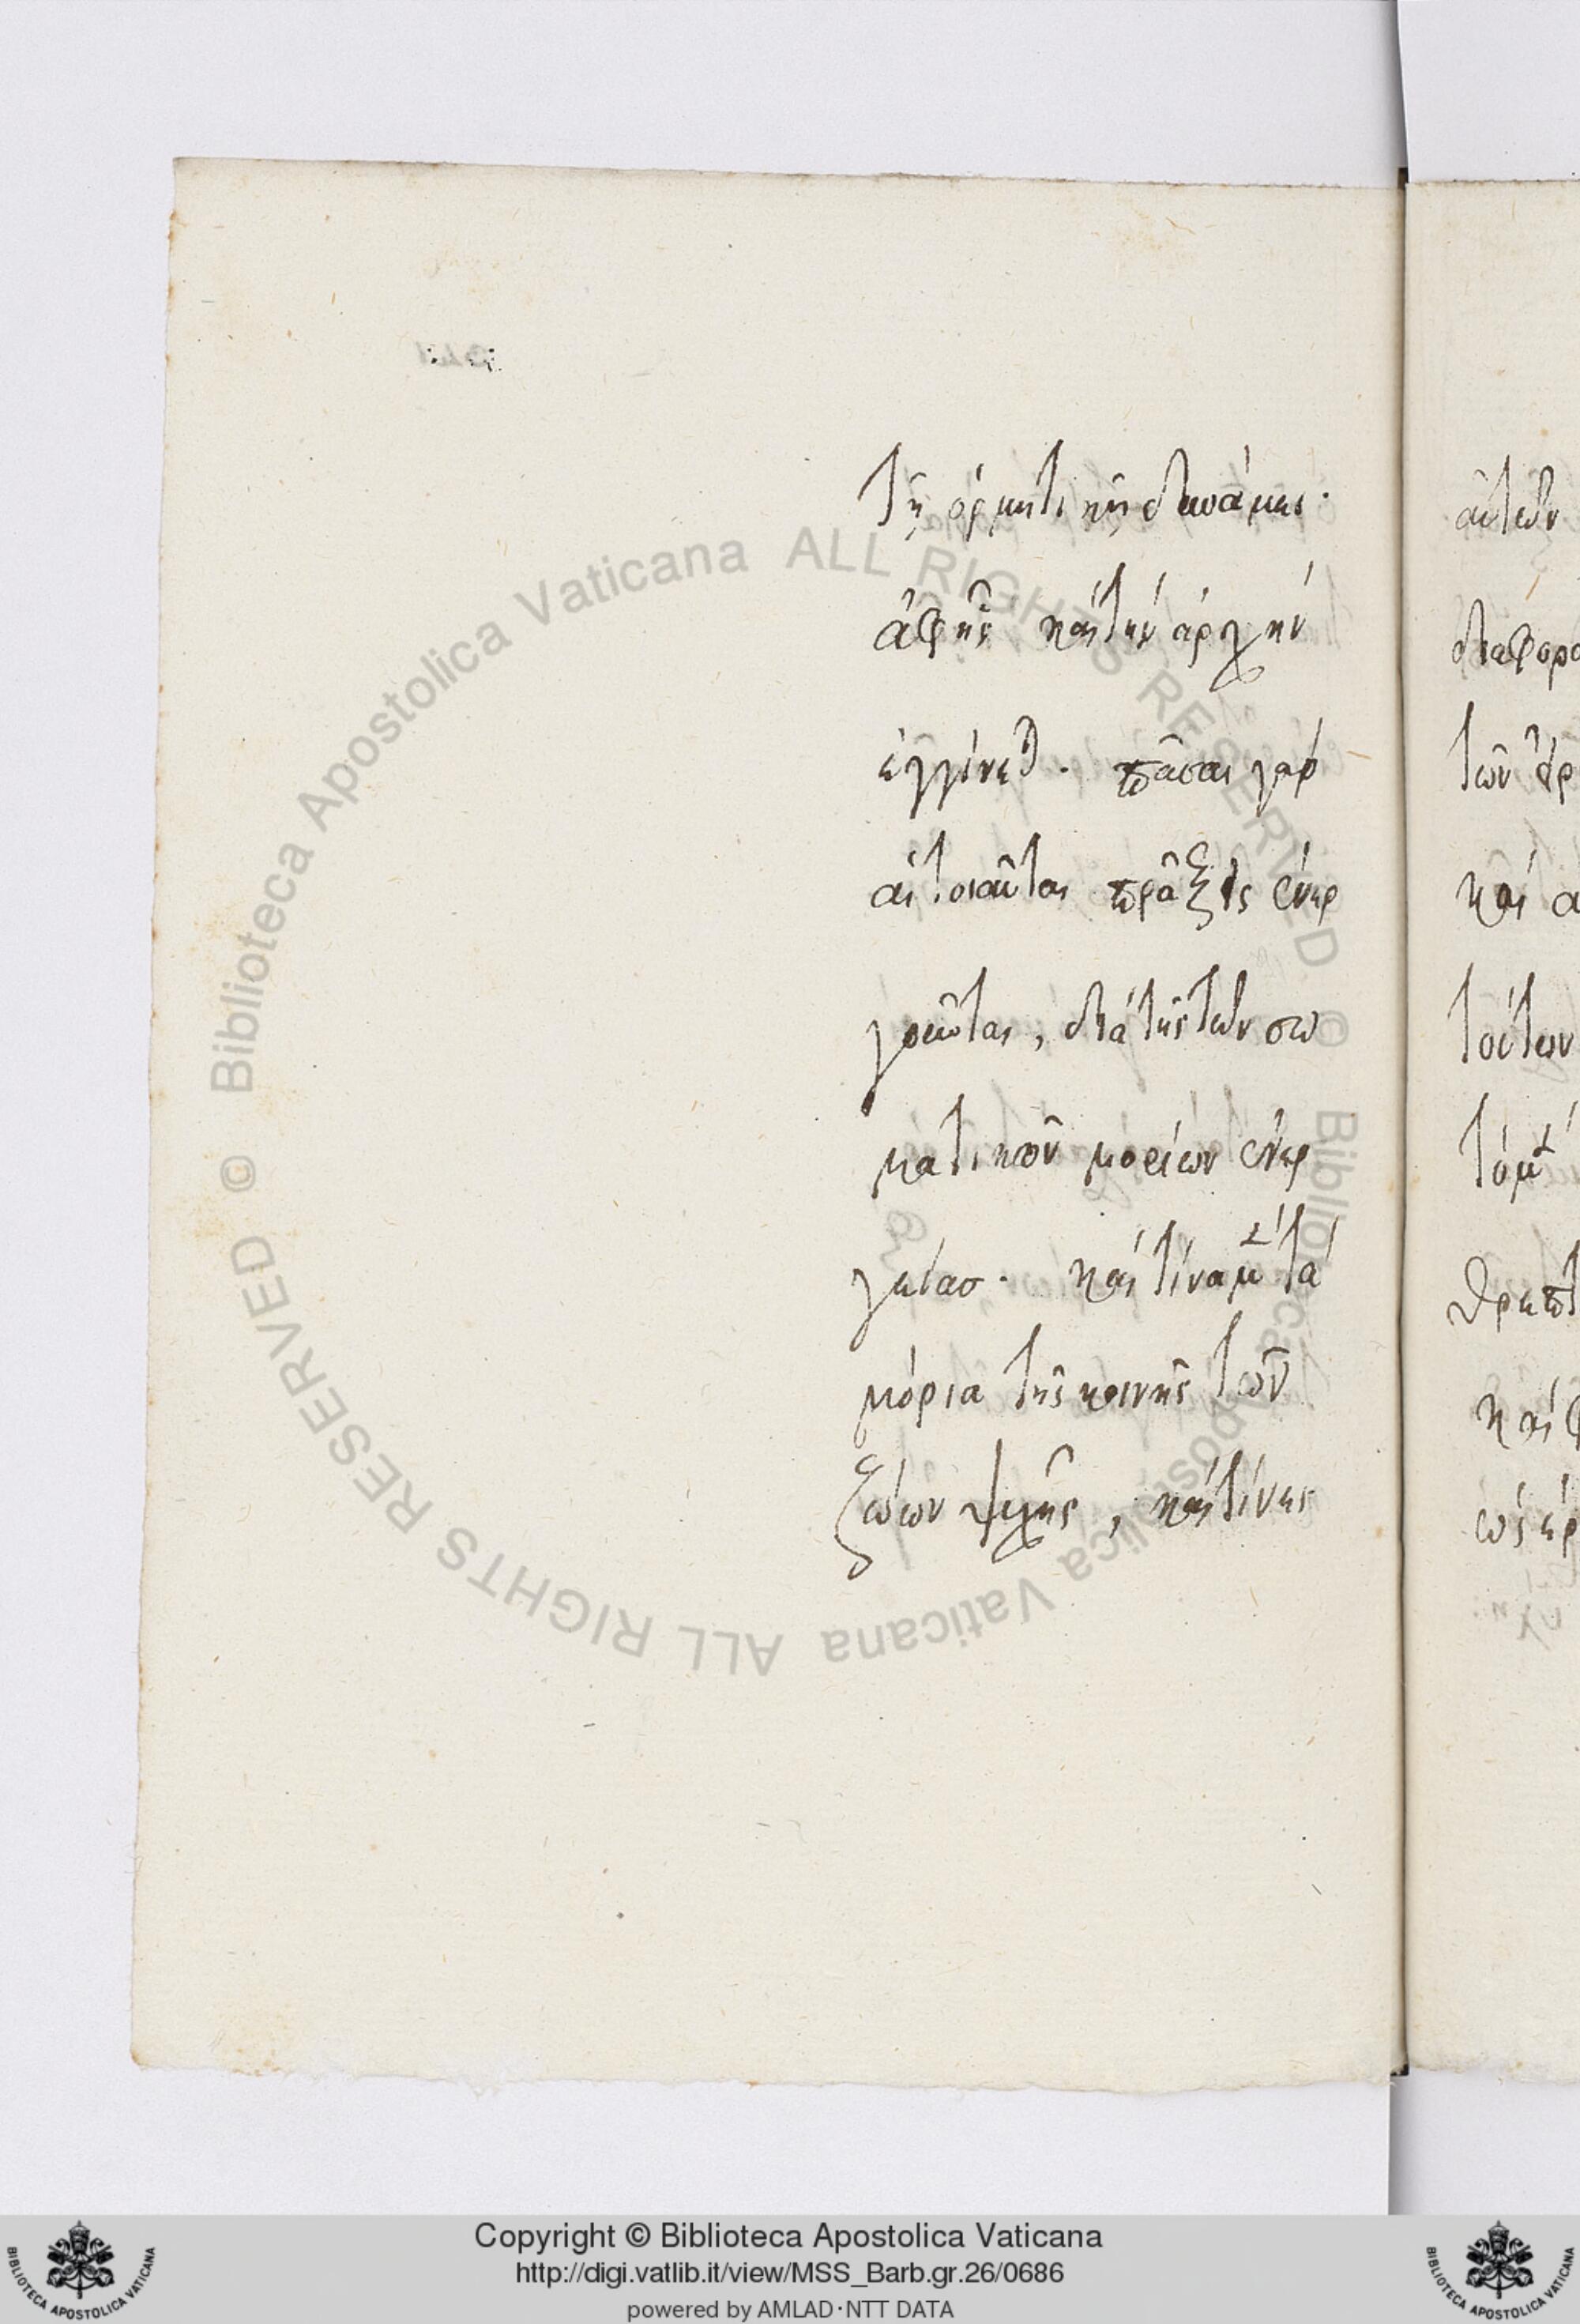 τῆς ὁρμητικῆς δυνάμεως.
ἀφ' ἧς καὶ τὴν ἀρχὴν
ἐγγίνεται. πᾶσαι γὰρ
αἱ τοιαῦται πράξεις ἐνερ
γοῦνται, διὰ τῆς τῶν σω
ματικῶν μορίων ἐνερ
γείασ. καὶ τίνα μὲν τὰ
μόρια τῆς κοινῆς τῶν
ζώων ψυχῆς, καὶ τίνες
αὐτῶν
τῶν
καὶ
τούτων
Biblioteca Apostolica Vaticana ALL RIGHTS RESERVED © Biblioteca Apostolica Vaticana ALL RIGHTS RESERVED ©
Copyright © Biblioteca Apostolica Vaticana
http://digi.vatlib.it/view/MSS_Barb.gr.26/0686
powered by AMLAD·NTT DATA
BIBLIOTECA APOSTOLICA VATICANA
BIBLIOTECA APOSTOLICA VATICANA